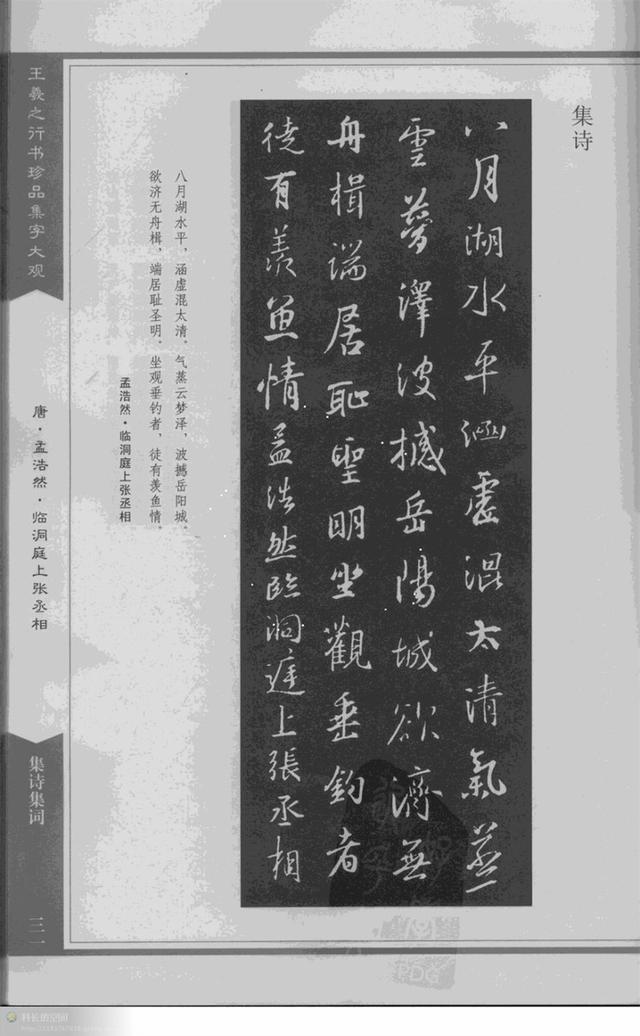 集诗
八月湖水平涵虚混太清氣蒸
雲夢澤波撼岳陽城欲濟無
舟楫端居恥聖明坐觀垂釣者
徒有羨魚情孟浩然臨洞庭上張丞相
八月湖水平，涵虚混太清。气蒸云梦泽，波撼岳阳城。
欲济无舟楫，端居耻圣明。坐观垂钓者，徒有羡鱼情。
孟浩然·临洞庭上张丞相
王羲之行书珍品集字大观
唐·孟浩然·临洞庭上张丞相
集诗集词
三一
PDG
科长的空间